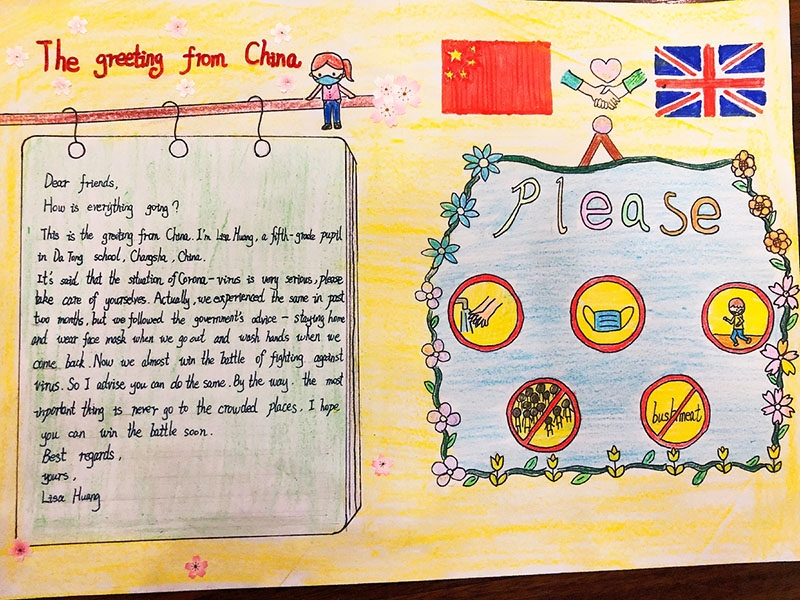 The greeting from China
Dear friends,
How is everything going?
This is the greeting from China. I'm Lisa Huang, a fifth-grade pupil
in Da Tong school, Changsha, China.
It's said that the situation of Corona-virus is very serious, please
take care of yourselves. Actually, we experienced the same in past
two months, but we followed the government's advice - staying home
and wear face mask when we go out and wash hands when we
come back. Now we almost win the battle of fighting against
virus. So I advise you can do the same. By the way. the most
important thing is never go to the crowded places. I hope
you can win the battle soon.
Best regards,
yours,
Lisa Huang
Please
bushmeat